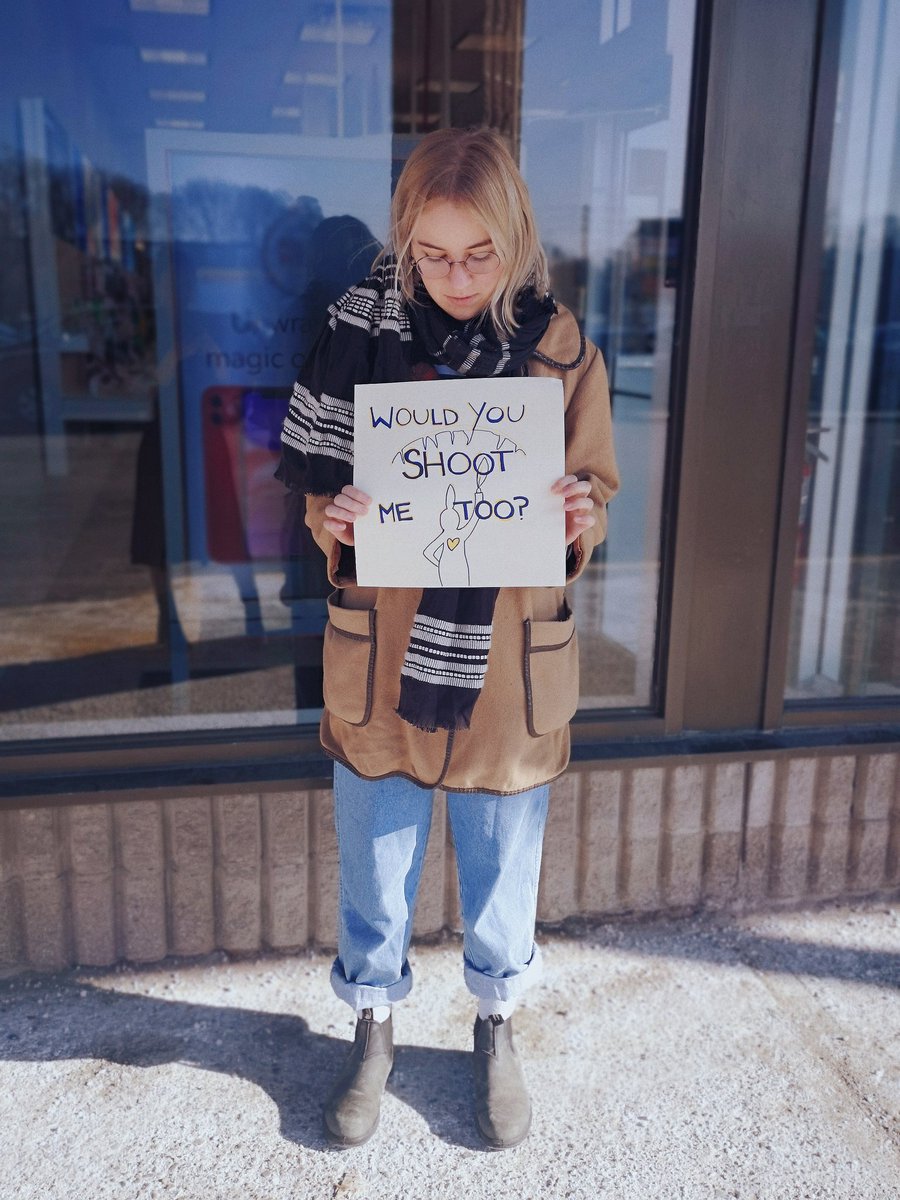 WOULD YOU
SHOOT
ME TOO?
magic